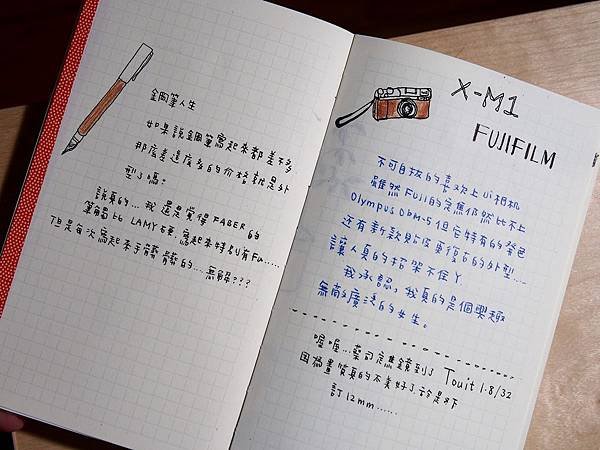 鋼筆人生
如果說鋼筆寫起來都差不多
那底差這麼多的价格就是外
型了嗎?
說真的...我還是覺得FABER的
筆觸比LAMY硬,寫起來特別有Fu.....
但是每次寫起來手髒髒的...無解???
X-M1
FUJIFILM
不可自拔的喜欢上小相机
雖然Fuji的定焦仍然比不上
Olympus OMD M-5但它特有的發色
還有新款
復古的外型...
讓人真的招架不住丫
我承認,我真的是個興趣
無敵廣泛的女生。
喔喔...蔡司定焦鏡到了 Touit 1.8/32
因為畫質真的不美好了,於是又下
訂12mm......